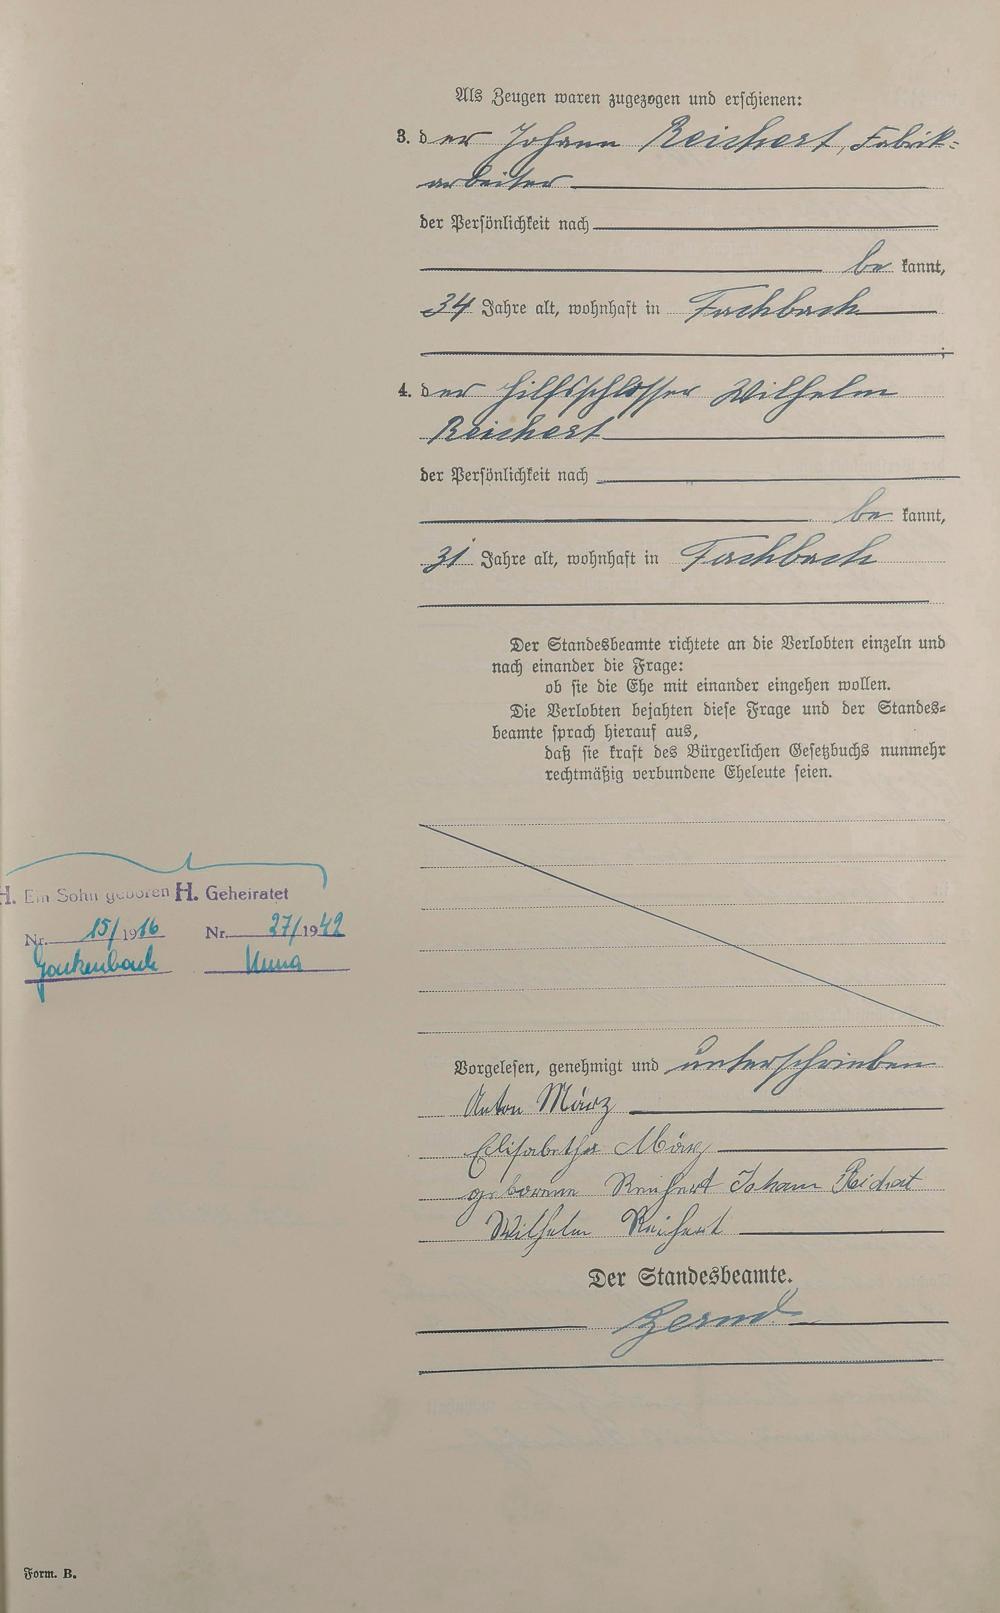 Als Zeugen waren zugezogen und erschienen:
3. der Johann Reichert, Fabrik-
arbeiter
der Persönlichkeit nach
be kannt,
34 Jahre alt, wohnhaft in Fachbach
;
4. der Hilfsschlosser Wilhelm
Reichert
der Persönlichkeit nach
be kannt,
31 Jahre alt, wohnhaft in Fachbach
Der Standesbeamte richtete an die Verlobten einzeln und
nach einander die Frage:
ob sie die Ehe mit einander eingehen wollen.
Die Verlobten bejahten diese Frage und der Standes-
beamte sprach hierauf aus,
daß sie kraft des Bürgerlichen Gesetzbuchs nunmehr
rechtmäßig verbundene Eheleute seien.
H. Ein Sohn geboren
Nr. 15/1916
H. Geheiratet
Nr. 27/1942
Unna
Vorgelesen, genehmigt und unterschrieben
Anton März
Elisabetha März
geborene Reichert Johann Reichert
Wilhelm Reichert
Der Standesbeamte.
Form. B.